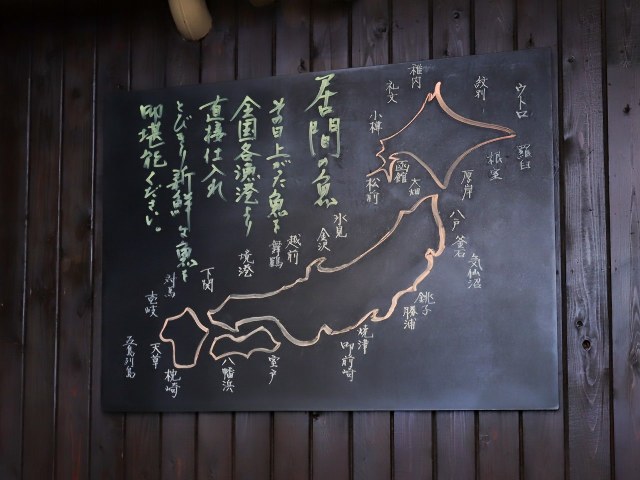 居間の魚
その日上がった魚を
全国各漁港より
直接仕入れ
とびきり新鮮な魚を
御堪能ください。
稚内
礼文
紋別
ウトロ
羅臼
根室
厚岸
小樽
函館
松前
大畑
八戸
釜石
気仙沼
銚子
勝浦
焼津
御前崎
氷見
金沢
越前
舞鶴
境港
下関
対馬
壱岐
五島列島
天草
枕崎
八幡浜
室戸